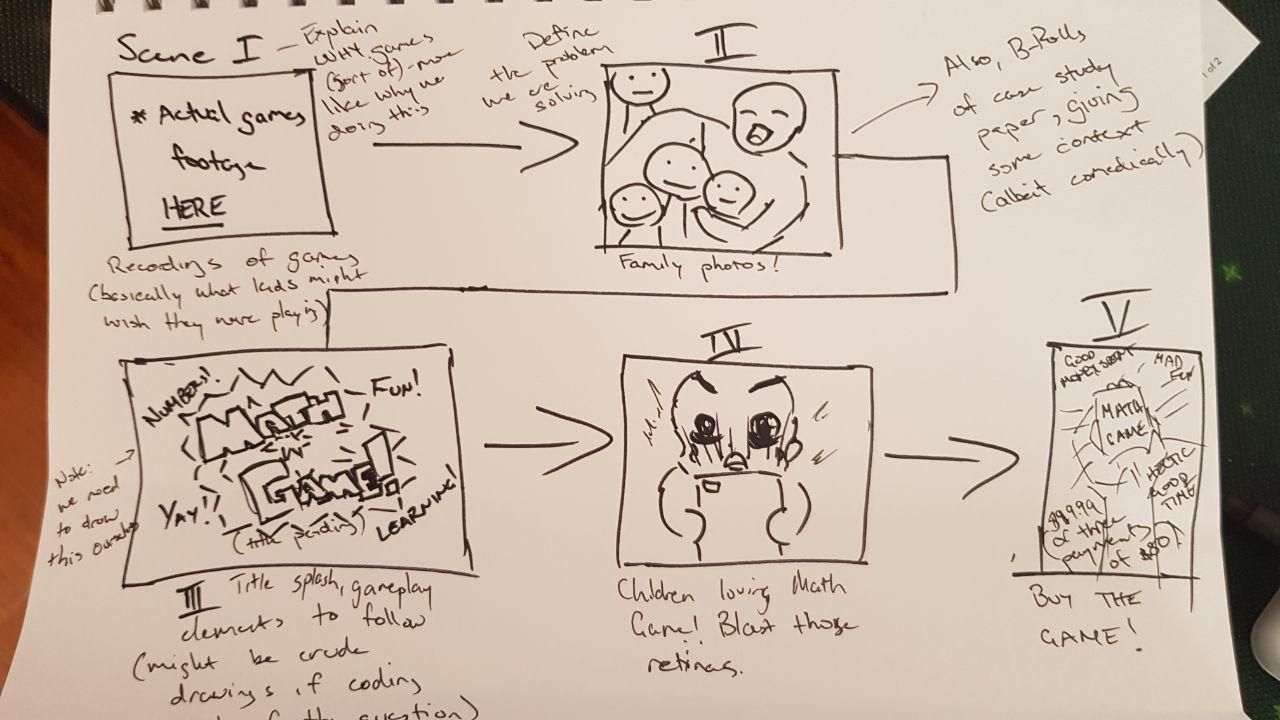 Scene I
- Explain
WHY games
(sort of) - more
like why we
doing this
* Actual games
footage
HERE
Recordings of games
(basically what kids might
wish they were playing)
Define
the problem
we are
solving
II
Family photos!
Also, B-Rolls
of case study
paper, giving
some context
(albeit comedically)
1 of 2
Note:
we need
to draw
this ourselves
NUMBERS!
FUN!
MATH
GAME!
YAY!!
LEARNING!
(title pending)
III Title splash, gameplay
elements to follow
(might be crude
drawings if coding
the question)
IV
Children loving Math
Game! Blast those
retinas.
V
GOOD
MONEY SPENT
MAD
FUN
MATH
GAME
HECTIC
GOOD
TIME
of three
payments
of $80
BUY THE
GAME!